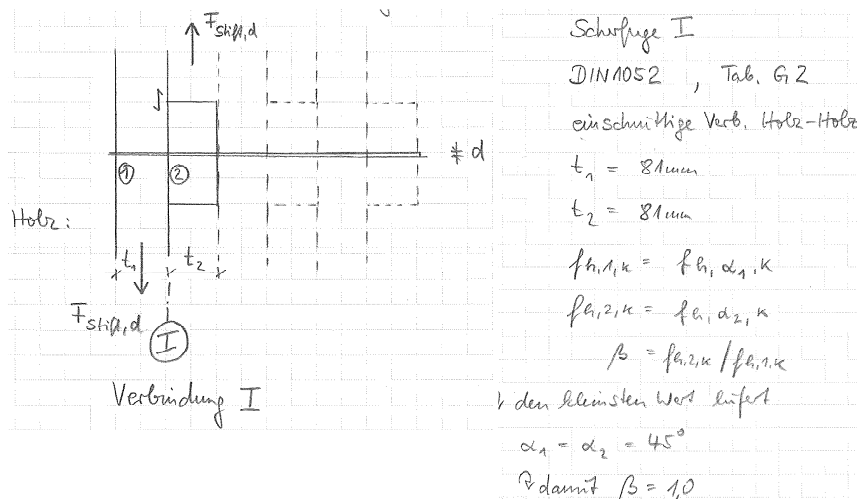 F Stift,d
d
① ②
Holz:
t₁ t₂
F Stift,d
I
Verbindung I
Scherfuge I
DIN1052 , Tab. G2
einschnittige Verb. Holz-Holz
t₁ = 81mm
t₂ = 81mm
fh,1,k = fh,α₁,k
fh,2,k = fh,α₂,k
β = fh,2,k / fh,1,k
den kleinsten Wert liefert
α₁ = α₂ = 45°
damit β = 1,0